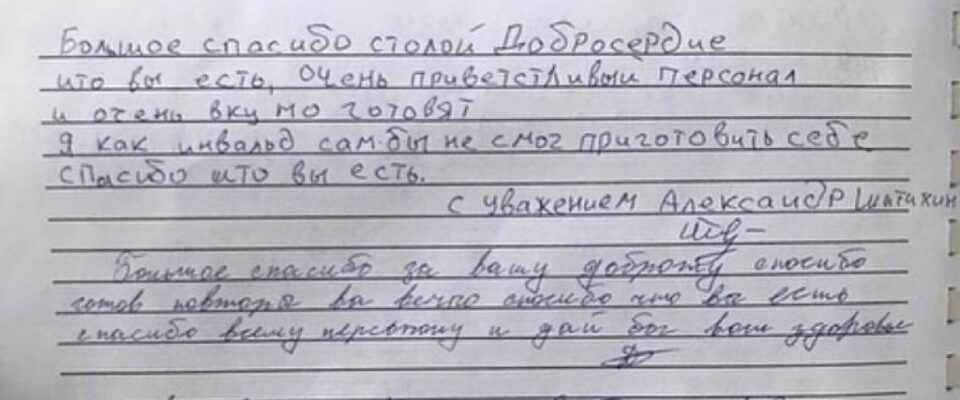 Большое спасибо столой Добросердие
что вы есть, Очень приветстливый персонал
и очень вкусно готовят
Я как инвалид сам бы не смог приготовить себе
Спасибо что вы есть.
с уважением Александр
Большое спасибо за вашу доброту спосибо
готов повторя вечно спосибо что ва есть
спасибо всему персоналу и дай бог вам здоровье